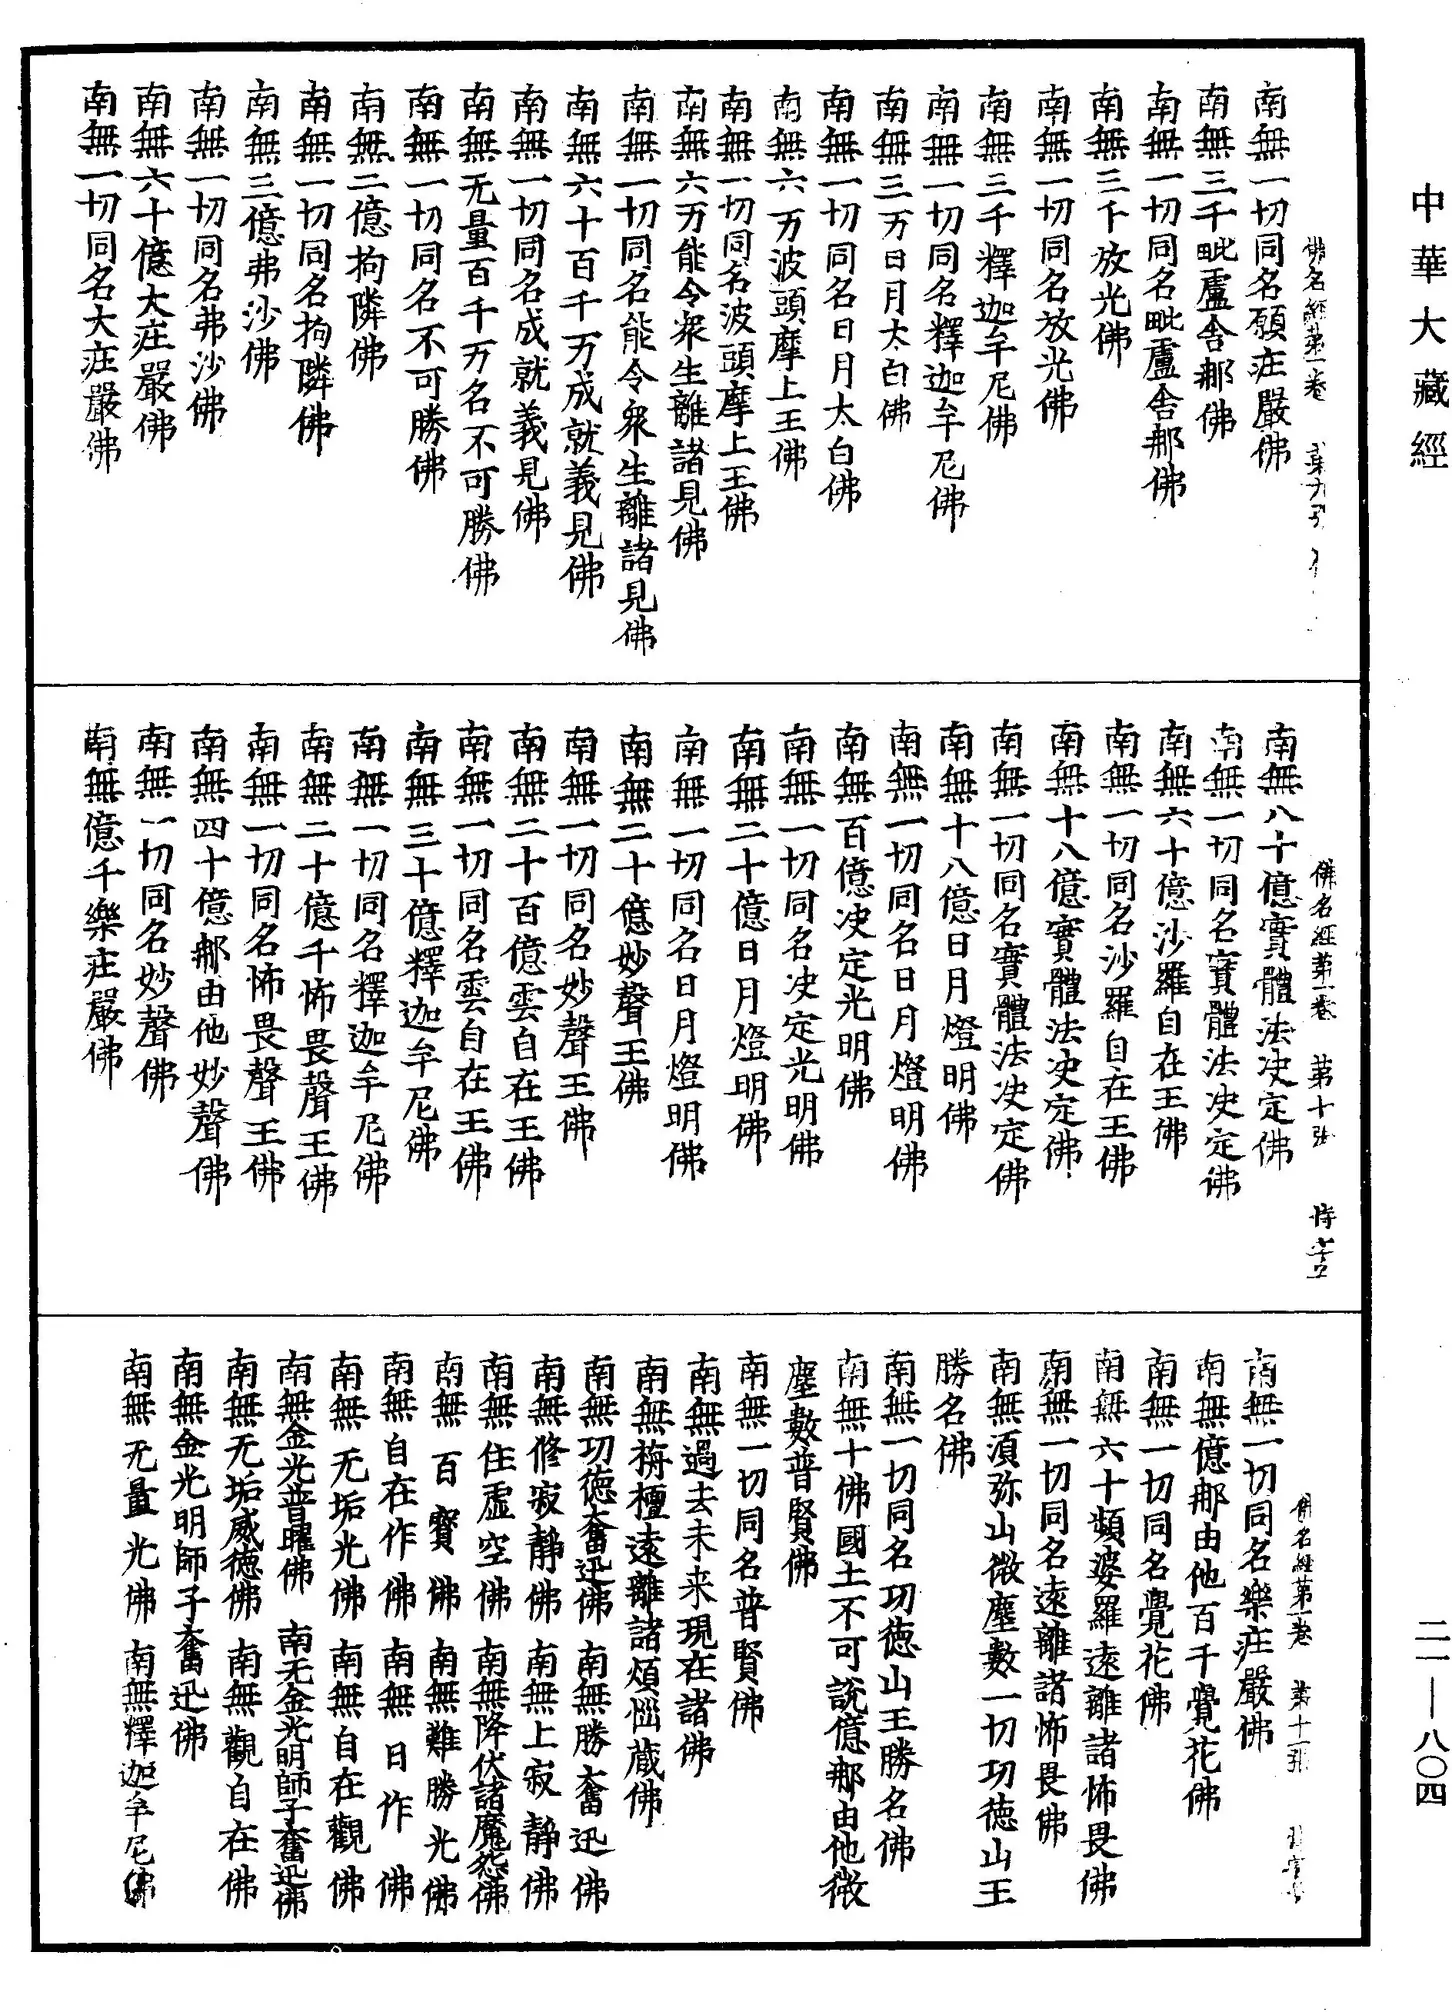 中華大藏經
佛名經第一卷 第九張
南無一切同名願庄嚴佛
南無三千毗盧舍那佛
南無一切同名毗盧舍那佛
南無三千放光佛
南無一切同名放光佛
南無三千釋迦牟尼佛
南無一切同名釋迦牟尼佛
南無三万日月太白佛
南無一切同名日月太白佛
南無六万波頭摩上王佛
南無一切同名波頭摩上王佛
南無六万能令衆生離諸見佛
南無一切同名能令衆生離諸見佛
南無六十百千万成就義見佛
南無一切同名成就義見佛
南無无量百千万名不可勝佛
南無一切同名不可勝佛
南無二億拘隣佛
南無一切同名拘隣佛
南無三億弗沙佛
南無一切同名弗沙佛
南無六十億大庄嚴佛
南無一切同名大庄嚴佛
佛名經第一卷 第十張
南無八十億實體法决定佛
南無一切同名實體法决定佛
南無六十億沙羅自在王佛
南無一切同名沙羅自在王佛
南無十八億實體法决定佛
南無一切同名實體法决定佛
南無十八億日月燈明佛
南無一切同名日月燈明佛
南無百億决定光明佛
南無一切同名决定光明佛
南無二十億日月燈明佛
南無一切同名日月燈明佛
南無二十億妙聲王佛
南無一切同名妙聲王佛
南無二十百億雲自在王佛
南無一切同名雲自在王佛
南無三十億釋迦牟尼佛
南無一切同名釋迦牟尼佛
南無二十億千怖畏聲王佛
南無一切同名怖畏聲王佛
南無四十億那由他妙聲佛
南無一切同名妙聲佛
南無億千樂庄嚴佛
佛名經第一卷 第十一張
南無一切同名樂庄嚴佛
南無億那由他百千覺花佛
南無一切同名覺花佛
南無六十頻婆羅遠離諸怖畏佛
南無一切同名遠離諸怖畏佛
南無湏弥山微塵數一切功德山王
勝名佛
南無一切同名功德山王勝名佛
南無十佛國土不可說億那由他微
塵數普賢佛
南無一切同名普賢佛
南無過去未来現在諸佛
南無栴檀遠離諸煩惱蔵佛
南無功德奮迅佛 南無勝奮迅佛
南無修寂静佛 南無上寂静佛
南無住虚空佛 南無降伏諸魔怨佛
南無百寳佛 南無難勝光佛
南無自在作佛 南無日作佛
南無无垢光佛 南無自在觀佛
南無金光普曜佛 南无金光明師子奮迅佛
南無无垢威德佛 南無觀自在佛
南無金光明師子奮迅佛
南無无量光佛 南無釋迦牟尼佛
二一—八〇四